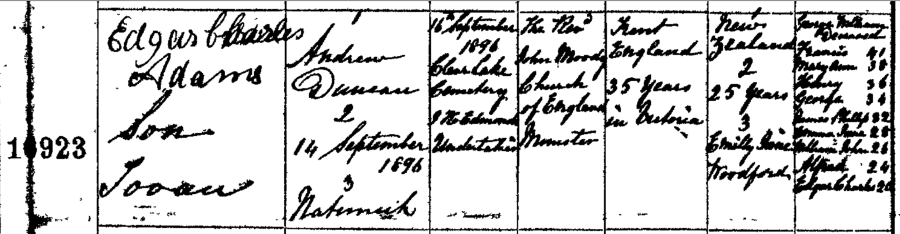 10923
Edgar Charles
Adams
Son
Andrew
Duncan
2
14 September
1896
3
Natimuk
16th September
1896
Clear Lake
Cemetery
Undertaker
The Revd
John Moody
Church
of England
Minister
Kent
England
35 Years
in Victoria
New
Zealand
2
25 Years
3
Emily Jane
Woodford
George William
Deceased
Francis 41
Mary Ann 38
Henry 36
George 34
James Phillip 32
Emma Jane 28
William John 26
Alfred 24
Edgar Charles 20